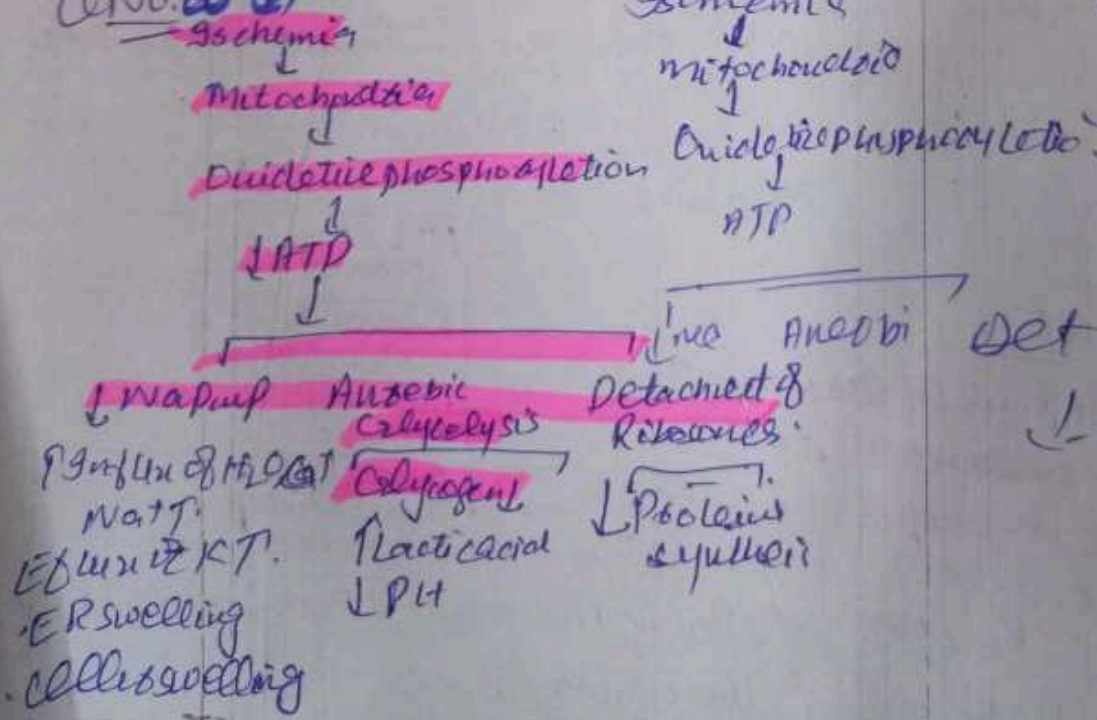 Ischemia
↓
Mitochodria
↓
Oxidative phosphorylation
↓
↓ATP
↓
↓ Na Pump
↑ Influx of H2O Ca↑
Na+↑.
Efflux K↑.
.ER swelling
.Cellular swelling
Anaerobic
Glycolysis
Glycogen↓
↑Lactic acid
↓PH
Detachment of
Ribosomes.
↓ Proteins
synthesis
Ischemia
↓
mitochondria
↓
Oxidative phosphorylation
↓
ATP
Det
↓